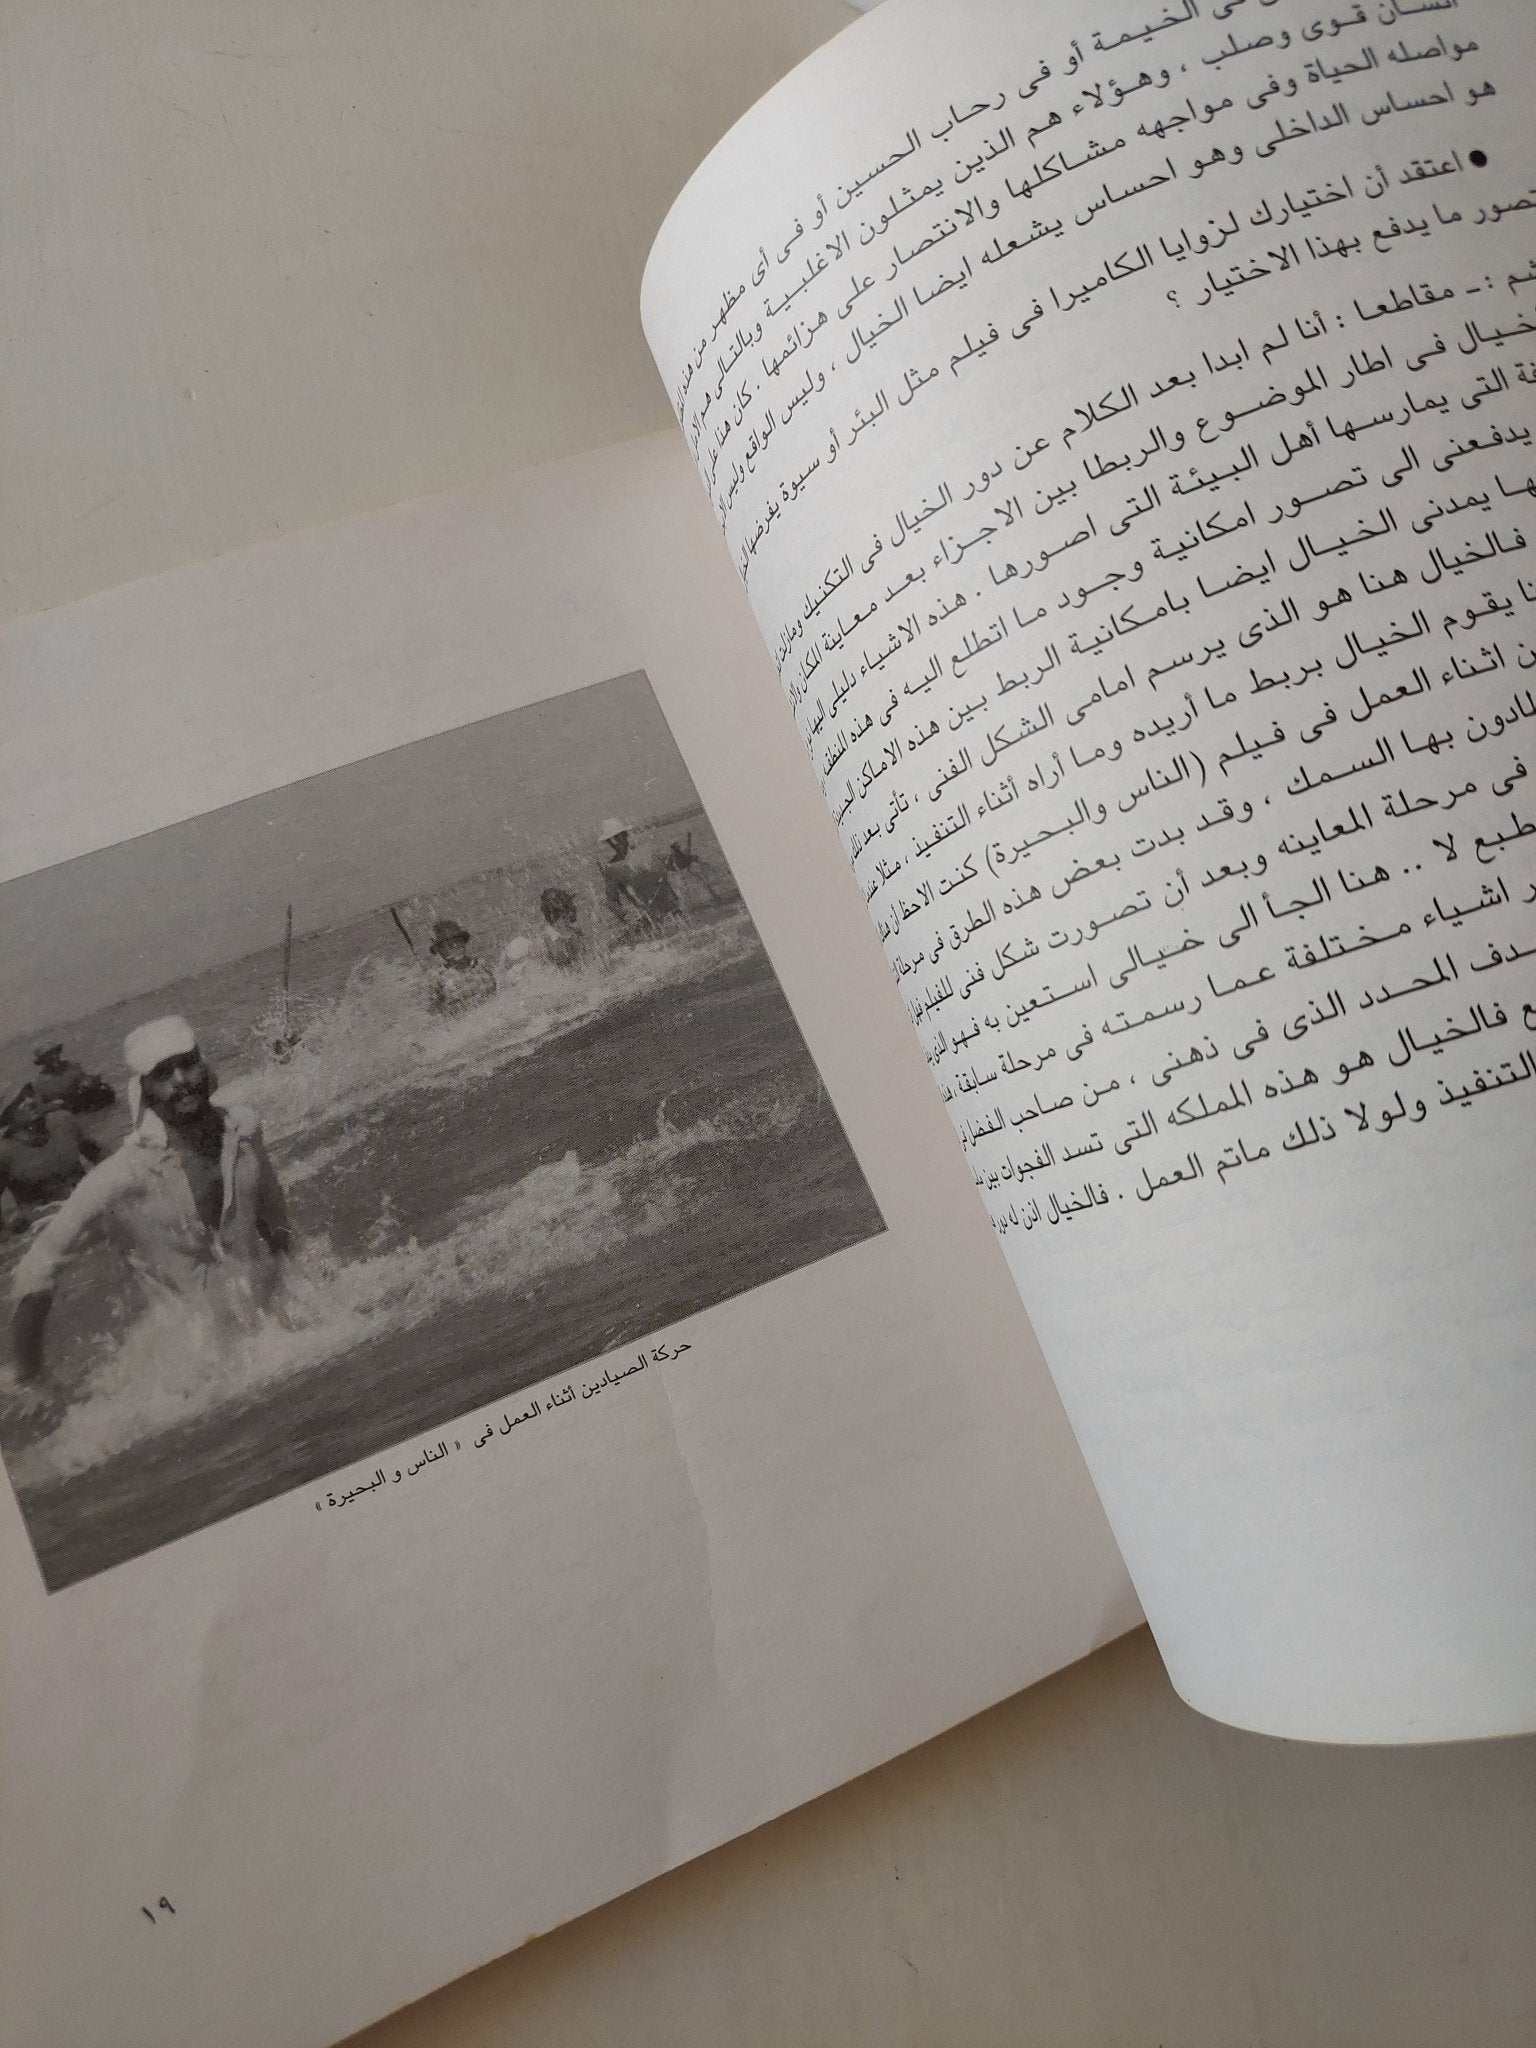 فى الخيمة أو فى رحاب الحسين أو فى أى مظهر من هذه
انسان قوى وصلب ، وهؤلاء هم الذين يمثلون الاغلبية وبالتالى هم
مواصله الحياة وفى مواجهه مشاكلها والانتصار على هزائمها . كان هذا
هو احساس الداخلى وهو احساس يشعله ايضا الخيال ، وليس الواقع وليس
● اعتقد أن اختيارك لزوايا الكاميرا فى فيلم مثل البئر أو سيوة يفرضها
تصور ما يدفع بهذا الاختيار ؟
: ـ مقاطعا : أنا لم ابدا بعد الكلام عن دور الخيال فى التكنيك ومازلت
فى اطار الموضوع والربطا بين الاجزاء بعد معاينة المكان
التى يمارسها أهل البيئة التى اصورها . هذه الاشياء دليلى اليها
يدفعنى الى تصور امكانية وجود ما اتطلع اليه فى هذه المنطقة
يمدنى الخيال ايضا بامكانية الربط بين هذه الاماكن
فالخيال هنا هو الذى يرسم امامى الشكل الفنى ، تأتى بعد ذلك
يقوم الخيال بربط ما أريده وما أراه أثناء التنفيذ ، مثلا
اثناء العمل فى فيلم (الناس والبحيرة) كنت الاحظ أن
بها السمك ، وقد بدت بعض هذه الطرق فى مرحلة
فى مرحلة المعاينه وبعد أن تصورت شكل فنى للفيلم
لا .. هنا الجأ الى خيالى استعين به فهو الذى
اشياء مختلفة عما رسمته فى مرحلة سابقة ،
المحدد الذى فى ذهنى ، من صاحب الفضل
فالخيال هو هذه المملكه التى تسد الفجوات بين
التنفيذ ولولا ذلك ماتم العمل . فالخيال اذن له
حركة الصيادين أثناء العمل فى « الناس و البحيرة »
١٩